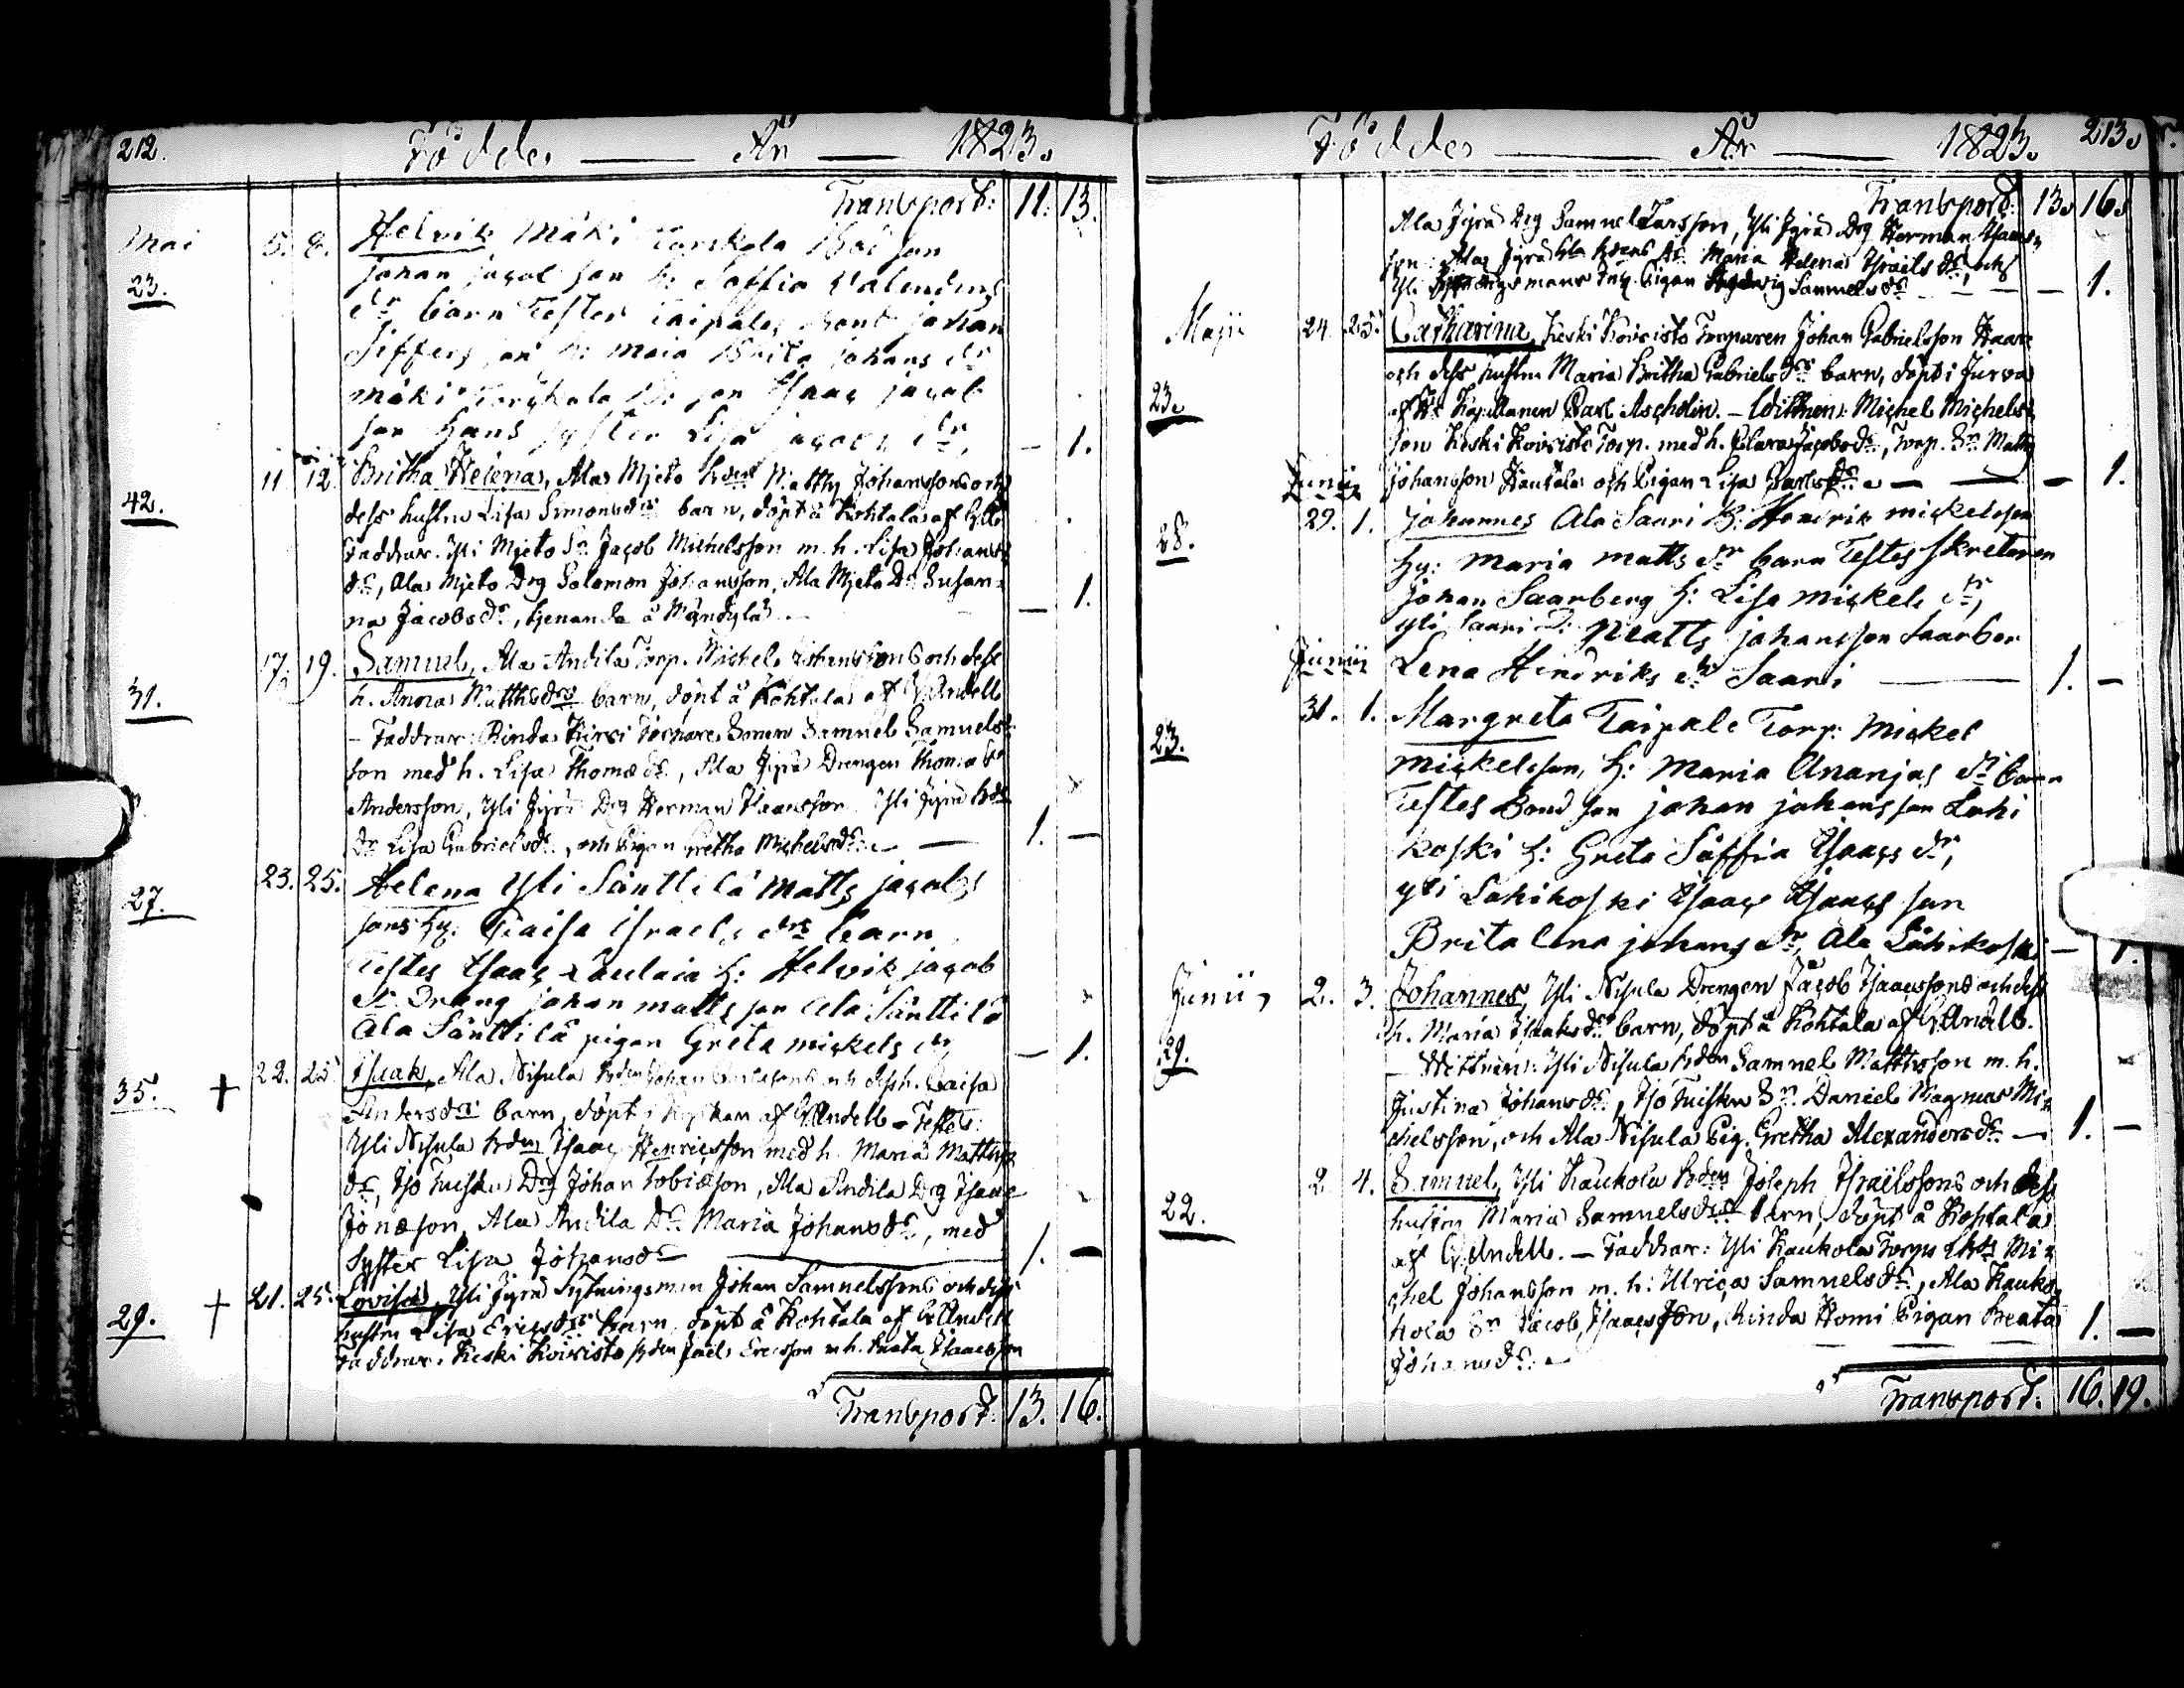 212. Födde År 1823.
Transport: 11. 13.
Mai 5. 8. Helvik Mäki Torkola Bod son
23. Johan jacob son h: Soffia Valendins
dr barn Testes Taipale, Bond johan
Siffers son h: Maia Brita johans dr
mäki Torkola B: son Isaac jacob
son hans syster Lisa jacobs dr, — 1.
11. 12. Britha Helena, Ala Mjeto bdens Matths Johanssons och
42. dess hustru Lisa Simonsdrs barn, döpt å Kohtala af GAndell
Faddrar. Yli Mjeto Sn Jacob Michelsson m. h. Lisa Johans
dr, Ala Mjeto Drg Salomon Johansson, Ala Mjeto Dr Susan-
na Jacobsdr, tjenande å Mändylä — 1.
17. 19. Samuel, Ala Andila Torp. Michel Johanssons och dess
31. h. Anna Matthsdrs barn, döpt å Kohtala af GAndell
– Faddrar: Rinda Kirsi Torpare Sonen Samuel Samuels-
son med h. Lisa Thomædr, Ala Jyrä Drengen Thomas
Andersson, Yli Jyrä Drg Herman Isaacsson Yli Jyrä bds
Dr Lisa Gabrielsdr, och Pigan Gretha Michelsdr. — 1. —
23. 25. Helena Yli Sänttilä Matts jacobs
27. sons hu: Caisa israels drs barn
Testes Isaac Laulaia h: Helvik jacob
dr Dräng johan matts son Ala Sänttilä
Ala Sänttilä pigan Greta mickels dr, — 1.
35. † 22. 25. Isaak, Ala Nisula bden Johan och dess h. Caisa
Andersdrs barn, döpt i Kyrkan af GAndell – Testes:
Yli Nisula bden Isaac Henricsson med h. Maria Matths
dr, Iso Tuisku Drg Johan Tobiæson, Ala Andila Drg Isaac
Jonæson, Ala Andila Dr. Maria Johansdr, med
Syster Lisa Johansdr — 1. —
29. † 21. 25. Lovisa, Yli Jyrä Sytningsman Johan Samuelssons och dess
hustru Lisa Ericsdrs barn döpt å Kohtala af GAndell
Faddrar. Keski Koivisto bden Joël Ericsson m h. Beata Isaacsson
Transport: 13. 16.
Födde År 1823. 213.
Transport 13. 16.
Ala Jyrä Drg Samuel Larsson, Yli Jyrä Drg Herman Isaacs-
son, Ala Jyrä bdens Dr. Maria Helena Israels dr, och
Yli Sytningsmans Pigan Hedvig Samuelsdr — 1.
Maji 24. 25. Catharina, Keski Koivisto Torparen Johan Gabrielsson Haare
och dess hustru Maria Britha Gabrielsdrs barn, döpt i Jurva
23. af Hr Kapellanen Carl Ascholin. – Wittnen: Michel Michels-
son Keski Koivisto Torp. med h. Clara Jacobsdr, Torp. Sn. Matths
Johansson Hautala och Pigan Lisa Carlsdr. — 1.
Junii
29. 1. Johannes Ala Saari B: Hendrik mickelsson
28. hu: maria matts dr barn Testes Skretaren
johan Saarberg h: Lisa mickels dr,
yli Saari D: Matts johansson Saarber
Junii Lena Hendriks dr Saari — 1. —
31. 1. Margreta Taipale Torp: mickel
23. mickelsson, h: maria Ananjas dr barn
Testes Bond son johan johansson Lahi
koski h: Greta Saffia Isaacs dr,
yli Lahikoski Isaac Isaacs son
Brita lena johans dr, Ala Lähikoski — 1.
Junii, 2. 3. Johannes, Yli Nisula Drengen Jacob Isaacssons och dess
h. Maria Isaaksdrs barn, döpt å Kohtala af GAndell.
29. – Wittnen: Yli Nisula bden Samuel Matthsson m. h.
Justina Johansdr, Iso Tuisku Sn. Daniel Magnus Mi-
chelsson, och Ala Nisula Pig. Gretha Alexandersdr — 1. —
2. 4. Samuel, Yli Kaukola bden Joseph Israëlssons och dess
22. hustru Maria Samuelsdrs barn, döpt å Kohtala
af GAndell. – Faddrar: Yli Kaukola Mi-
chel Johansson m. h: Ulrica Samuelsdr, Ala Kauko-
hola Sn Jacob Isaacsson, Rinda Homi Pigan Beata
Johansdr. — 1. —
Transport: 16. 19.